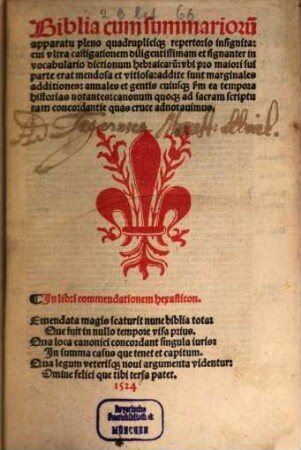 Biblia cum summariorū
apparatu pleno quadrupliciq; repertorio insignita:
cui vltra castigationem diligentissimam et signanter in
vocabulario dictionum hebraicarū: vbi pro maiori sui
parte erat mendosa et vitiosa: addite sunt marginales
additiones: annales et gentis cuiusq; ꝓm ea tempora
historias notantes: canonum quoq; ad sacram scriptu
ram concordantie quas cruce adnotauimus.
¶ In libri commendationem hexasticon.
Emendata magis scaturit nunc biblia tota:
Que fuit in nullo tempore visa prius.
Qua loca canonici concordant singula iuris:
In summa casus que tenet et capitum.
Qua legum veterisq; noui argumenta videntur:
Omine felici que tibi tersa patet.
1524
Bayerische
Staatsbibliothek
MÜNCHEN